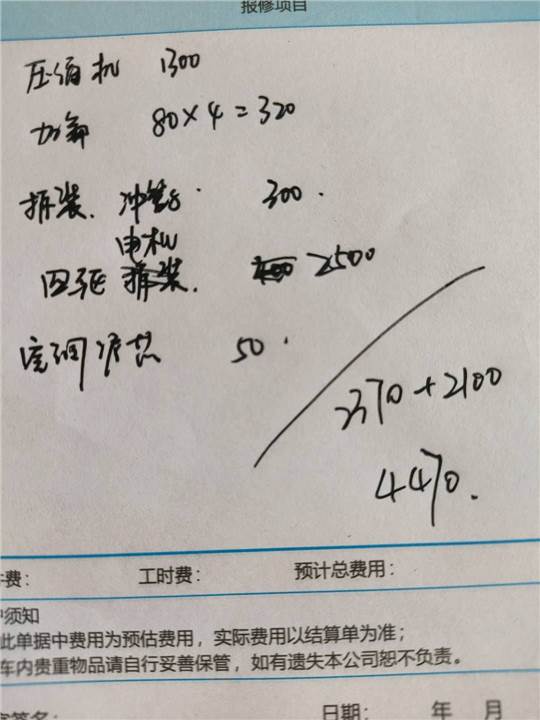 报修项目
压缩机 1300
加氟 80×4=320
拆装. 冲管. 300.
电机
四驱 拆装. 2500
空调滤芯 50.
2370+2100
4470.
费:
工时费:
预计总费用:
须知
此单据中费用为预估费用，实际费用以结算单为准；
车内贵重物品请自行妥善保管，如有遗失本公司恕不负责。
签名:
日期: 年 月